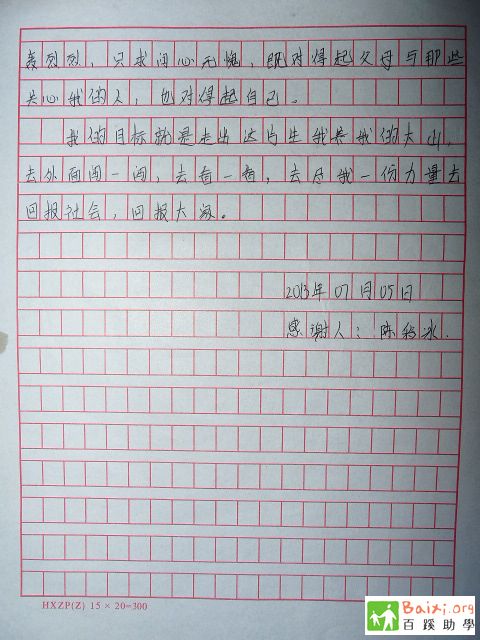 轰烈烈，只求问心无愧，既对得起父母与那些
关心我的人，也对得起自己。
我的目标就是走出这片生我养我的大山，
去外面闯一闯，去看一看，去尽我一份力量去
回报社会，回报大家。
2013年07月05日
感谢人：陈冰.
HXZP(Z) 15×20=300
Baixi.org
百蹊助學